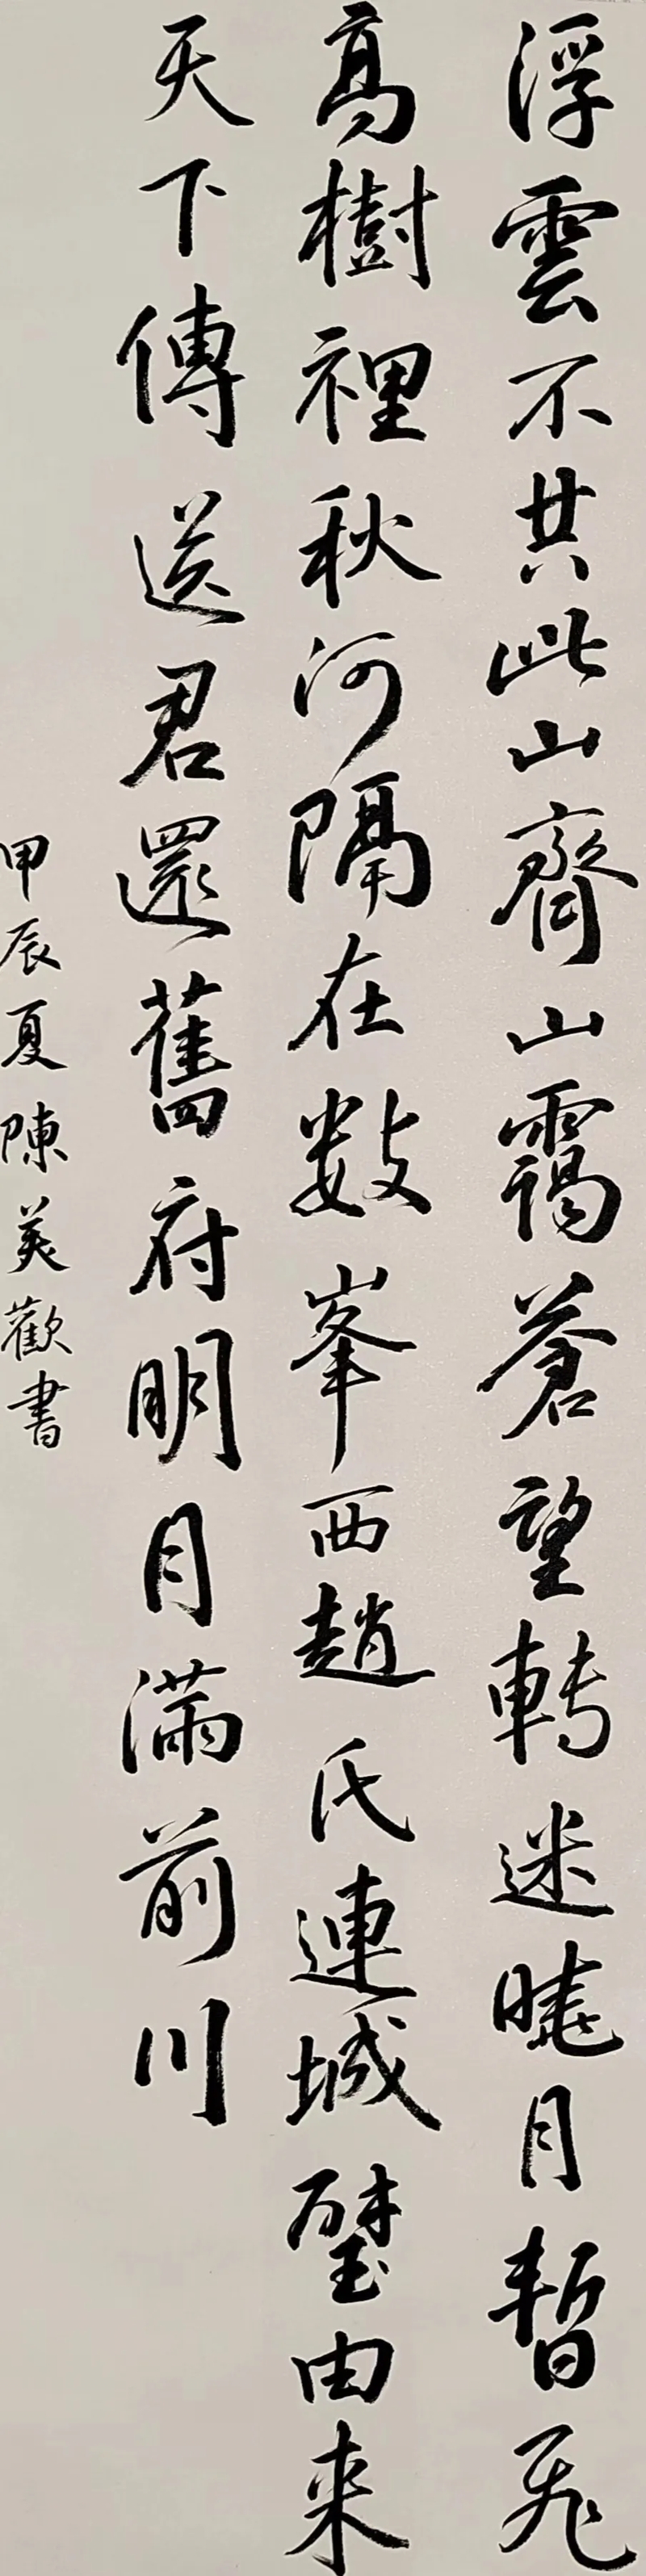 浮雲不共此山齊山靄蒼蒼望轉迷曉月暫飛
高樹裡秋河隔在數峯西趙氏連城璧由來
天下傳送君還舊府明月滿前川
甲辰夏陳美歡書